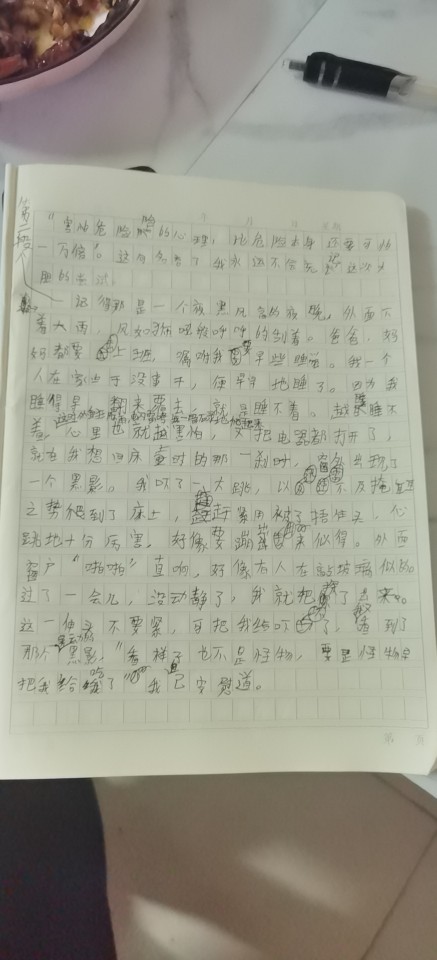 第二段
年 月 日 星期
"害怕危险的心理,比危险本身还要可怕
一万倍"。这句名言了我永远不会忘 这次大
胆的尝试。
记得那是一个夜黑风高的夜晚,外面下
着大雨,风如狂吼般呼呼的刮着。爸爸、妈
妈都要上班,嘱咐我要早些睡。我一个
人在家由于没事干,便早早地睡了。因为我
睡得早,翻来覆去,就是睡不着。越睡不
着,心里也就越害怕,又把电器都打开了,
就在我想回床 时的那一刹时,窗外出现了
一个黑影。我吓了一大跳,以 不及掩耳
之势爬到了床上,赶紧用被子捂住头,心
跳地十分厉害,好像要蹦出来似得。外面
窗户"啪啪"直响,好像有人在敲玻璃似的
过了一会儿,没动静了,我就把 了出来。
这一伸头不要紧,可把我给吓 了,看到了
那个黑影,"看样子也不是怪物,要是怪物早
把我给吃了"我自己安慰道。
第 页